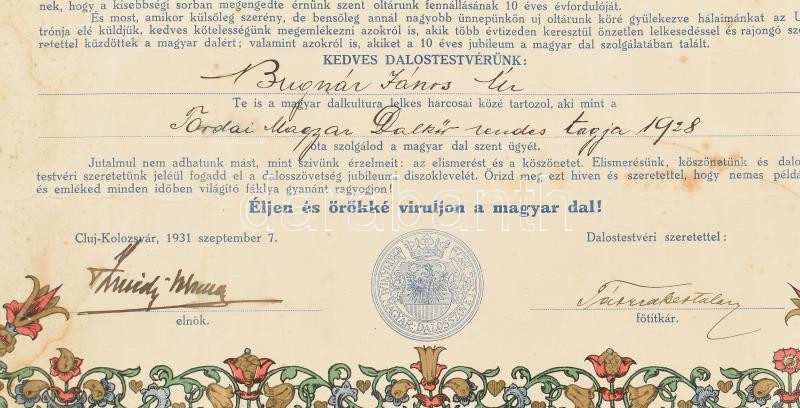 nek, hogy a kisebbségi sorban megengedte érnünk szent oltárunk fennállásának 10 éves évfordulóját.
És most, amikor külsőleg szerény, de bensőleg annál nagyobb ünnepünkön uj oltárunk köré gyülekezve hálaimánkat az U
trónja elé küldjük, kedves kötelességünk megemlékezni azokról is, akik több évtizeden keresztül önzetlen lelkesedéssel és rajongó sze
retettel küzdöttek a magyar dalért; valamint azokról is, akiket a 10 éves jubileum a magyar dal szolgálatában talált.
KEDVES DALOSTESTVÉRÜNK:
Bugnár János Úr
Te is a magyar dalkultura lelkes harcosai közé tartozol, aki mint a
Tordai Magyar Dalkör rendes tagja 1928
óta szolgálod a magyar dal szent ügyét.
Jutalmul nem adhatunk mást, mint szivünk érzelmeit: az elismerést és a köszönetet. Elismerésünk, köszönetünk és dalos
testvéri szeretetünk jeléül fogadd el a dalosszövetség jubileumi diszoklevelét. Őrizd meg ezt hiven és szeretettel, hogy nemes példá
és emléked minden időben világitó fáklya gyanánt ragyogjon!
Éljen és örökké viruljon a magyar dal!
darabanth
Cluj-Kolozsvár, 1931 szeptember 7.
Dalostestvéri szeretettel:
MAGYAR DALOSSZÖV
elnök.
főtitkár.